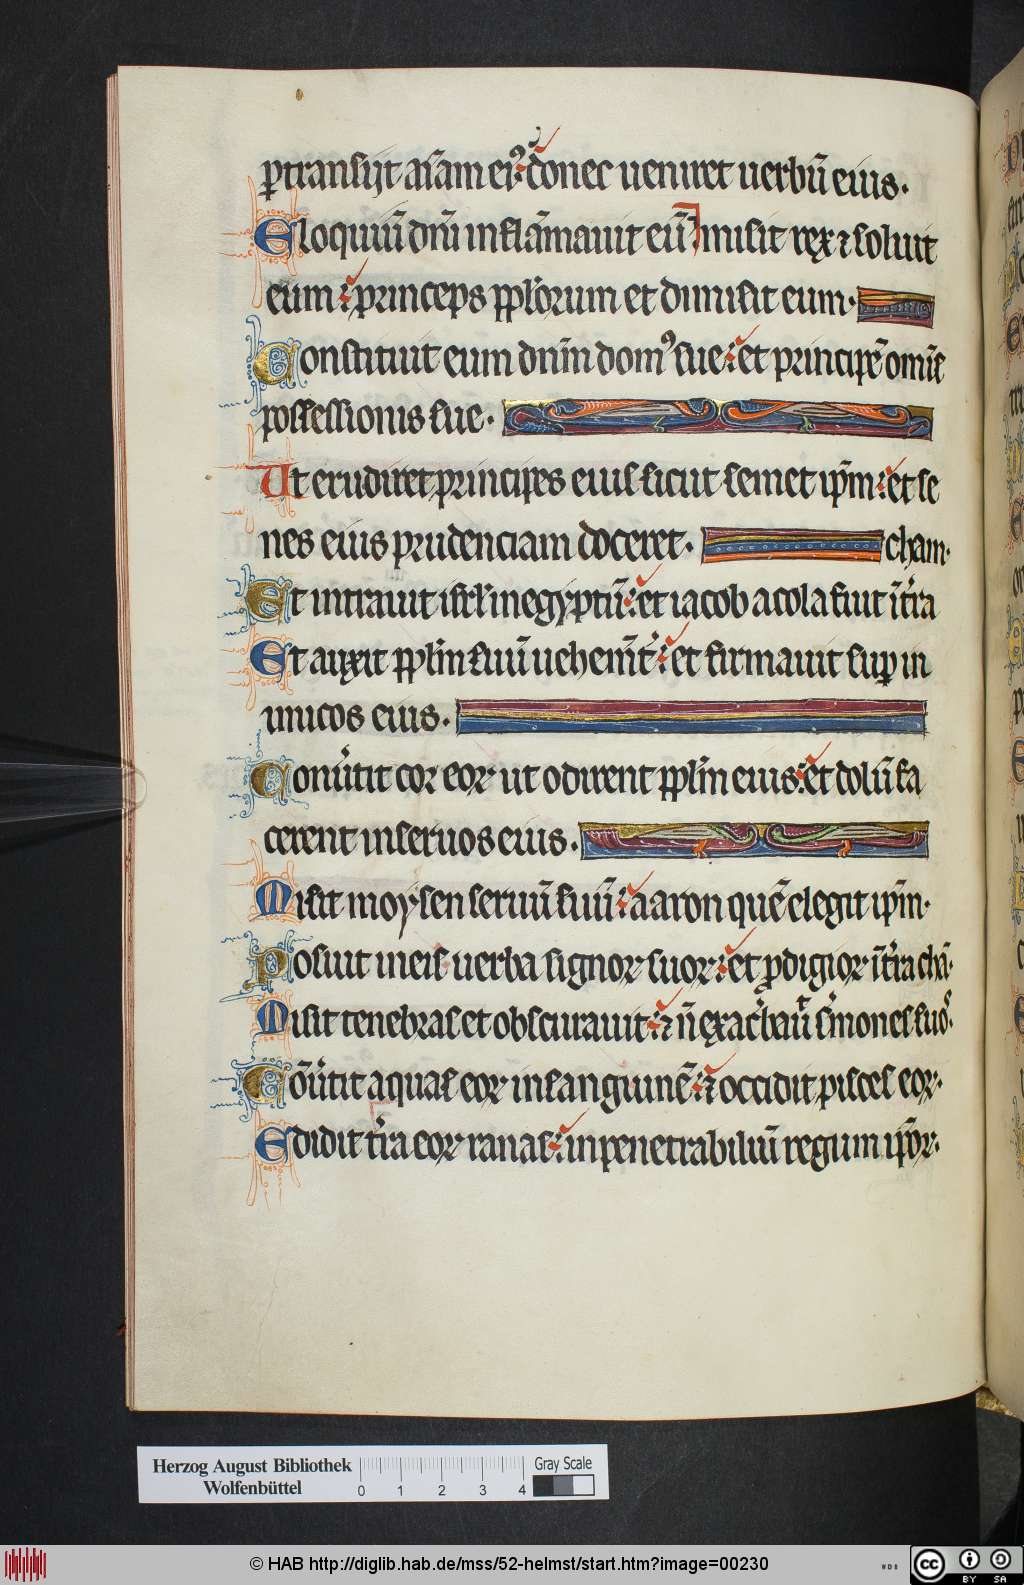 ꝑtransijt aīam eiꝰ donec ueniret uerbū eius.
Eloquiū dn̄i inflāmauit eū Misit rex ⁊ soluit
eum princeps ppl̓orum et dimisit eum.
Constituit eum dn̄m domꝰ sue et principē omīs
possessionis sue.
Ut erudiret principes eius sicut semet ip̄m et se
nes eius prudenciam doceret. cham.
Et intrauit isrl̓ in egyptū et iacob acola fuit ī t̓ra
Et auxit ppl̓m suū uehem̄t̓ et firmauit suꝑ in
imicos eius.
Conu̓tit cor eoꝝ ut odirent ppl̓m eius et dolū fa
cerent in seruos eius.
Misit moysen seruū suū aaron quē elegit ip̄m.
Posuit in eis uerba signoꝝ suoꝝ et ꝓdigioꝝ ī t̓ra chā.
Misit tenebras et obscurauit ⁊ n̄ exac̓bauͭ s̓mones suoˢ.
Cōu̓tit aquas eoꝝ in sanguinē ⁊ occidit pisces eoꝝ.
Edidit t̓ra eoꝝ ranas in penetrabiliū regum ip̄oꝝ.
Herzog August Bibliothek
Wolfenbüttel
0 1 2 3 4
Gray Scale
© HAB http://diglib.hab.de/mss/52-helmst/start.htm?image=00230
WDB
cc BY SA